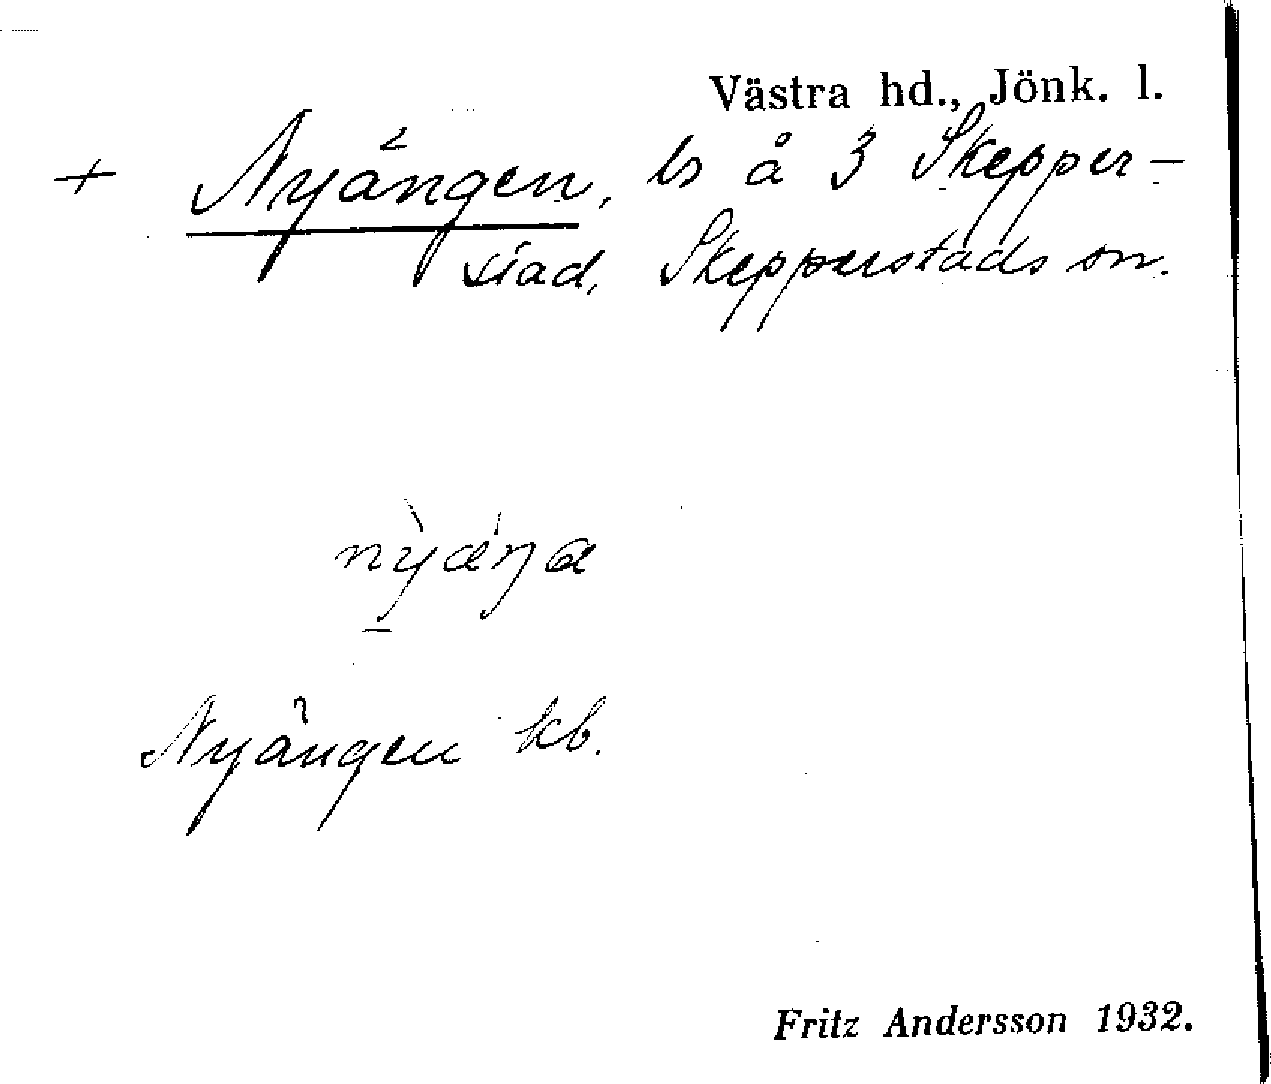 Västra hd., Jönk. l.
+ Nyängen, ls å 3 Skepper-
stad, Skepperstads sn.
nỳæ´ŋa
Nyängen kb.
Fritz Andersson 1932.